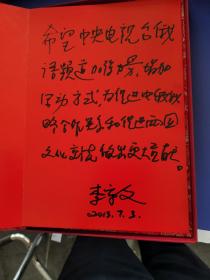 希望中央电视台俄
语频道加强力量,增加
活动方式,为促进中俄战
略合作关系和促进两国
文化交流做出更大贡献。
李
2013.7.3.